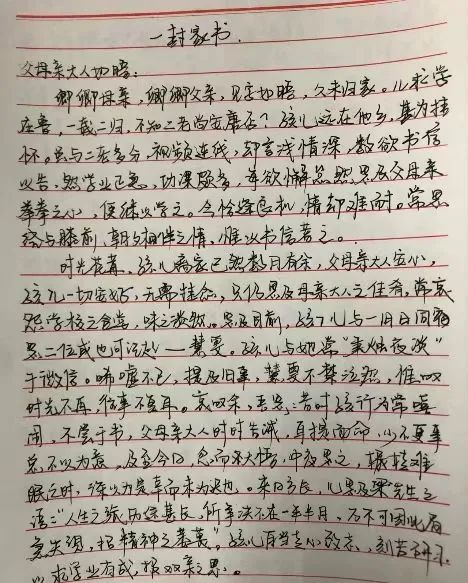 一封家书
父母亲大人如晤：
卿卿母亲，卿卿父亲，见字如晤，久未归家。儿求学
在鲁，一载二归，不知二老尚安康否？孩儿远在他乡，甚为挂
怀。虽与二老多分，视频连线，却言浅情深，数欲书信
以告，然学业正急，功课颇多，每欲懈怠然思及父母亲
拳拳之心，便继以学之。今恰逢良机，情却难耐。常思
绕与膝前，朝夕相伴之情，唯以书信寄之。
时光荏苒，孩儿离家已然数月有余，父母亲大人安心，
孩儿一切安好，无需挂念，只仍思及母亲大人之佳肴。常哀
怨学校之食堂，味之淡然。思及目前，孩儿与一旧日同窗
二位或也可记起——慧雯。孩儿与她常“秉烛夜谈”
于微信。唏嘘不已，提及旧事，慧雯不禁泫然，惟叹
时光不再，往事不复耳。哀叹余，吾思：昔时孩行为常嘻
闹，不喾于书，父母亲大人时时告诫，耳提面命，小不更事
总不以为意。及至今日，忽而大悟，中夜思之，辗转难
眠之时，深以为是幸而未为迟也。来日方长，儿思及梁先生之
语：“人生之旅历途甚长，所争决不在一年半月，万不可因此着
急失望，招精神之萎葨”。孩儿自当走心改志，刻苦研习
以求学业有成，报双亲之恩。